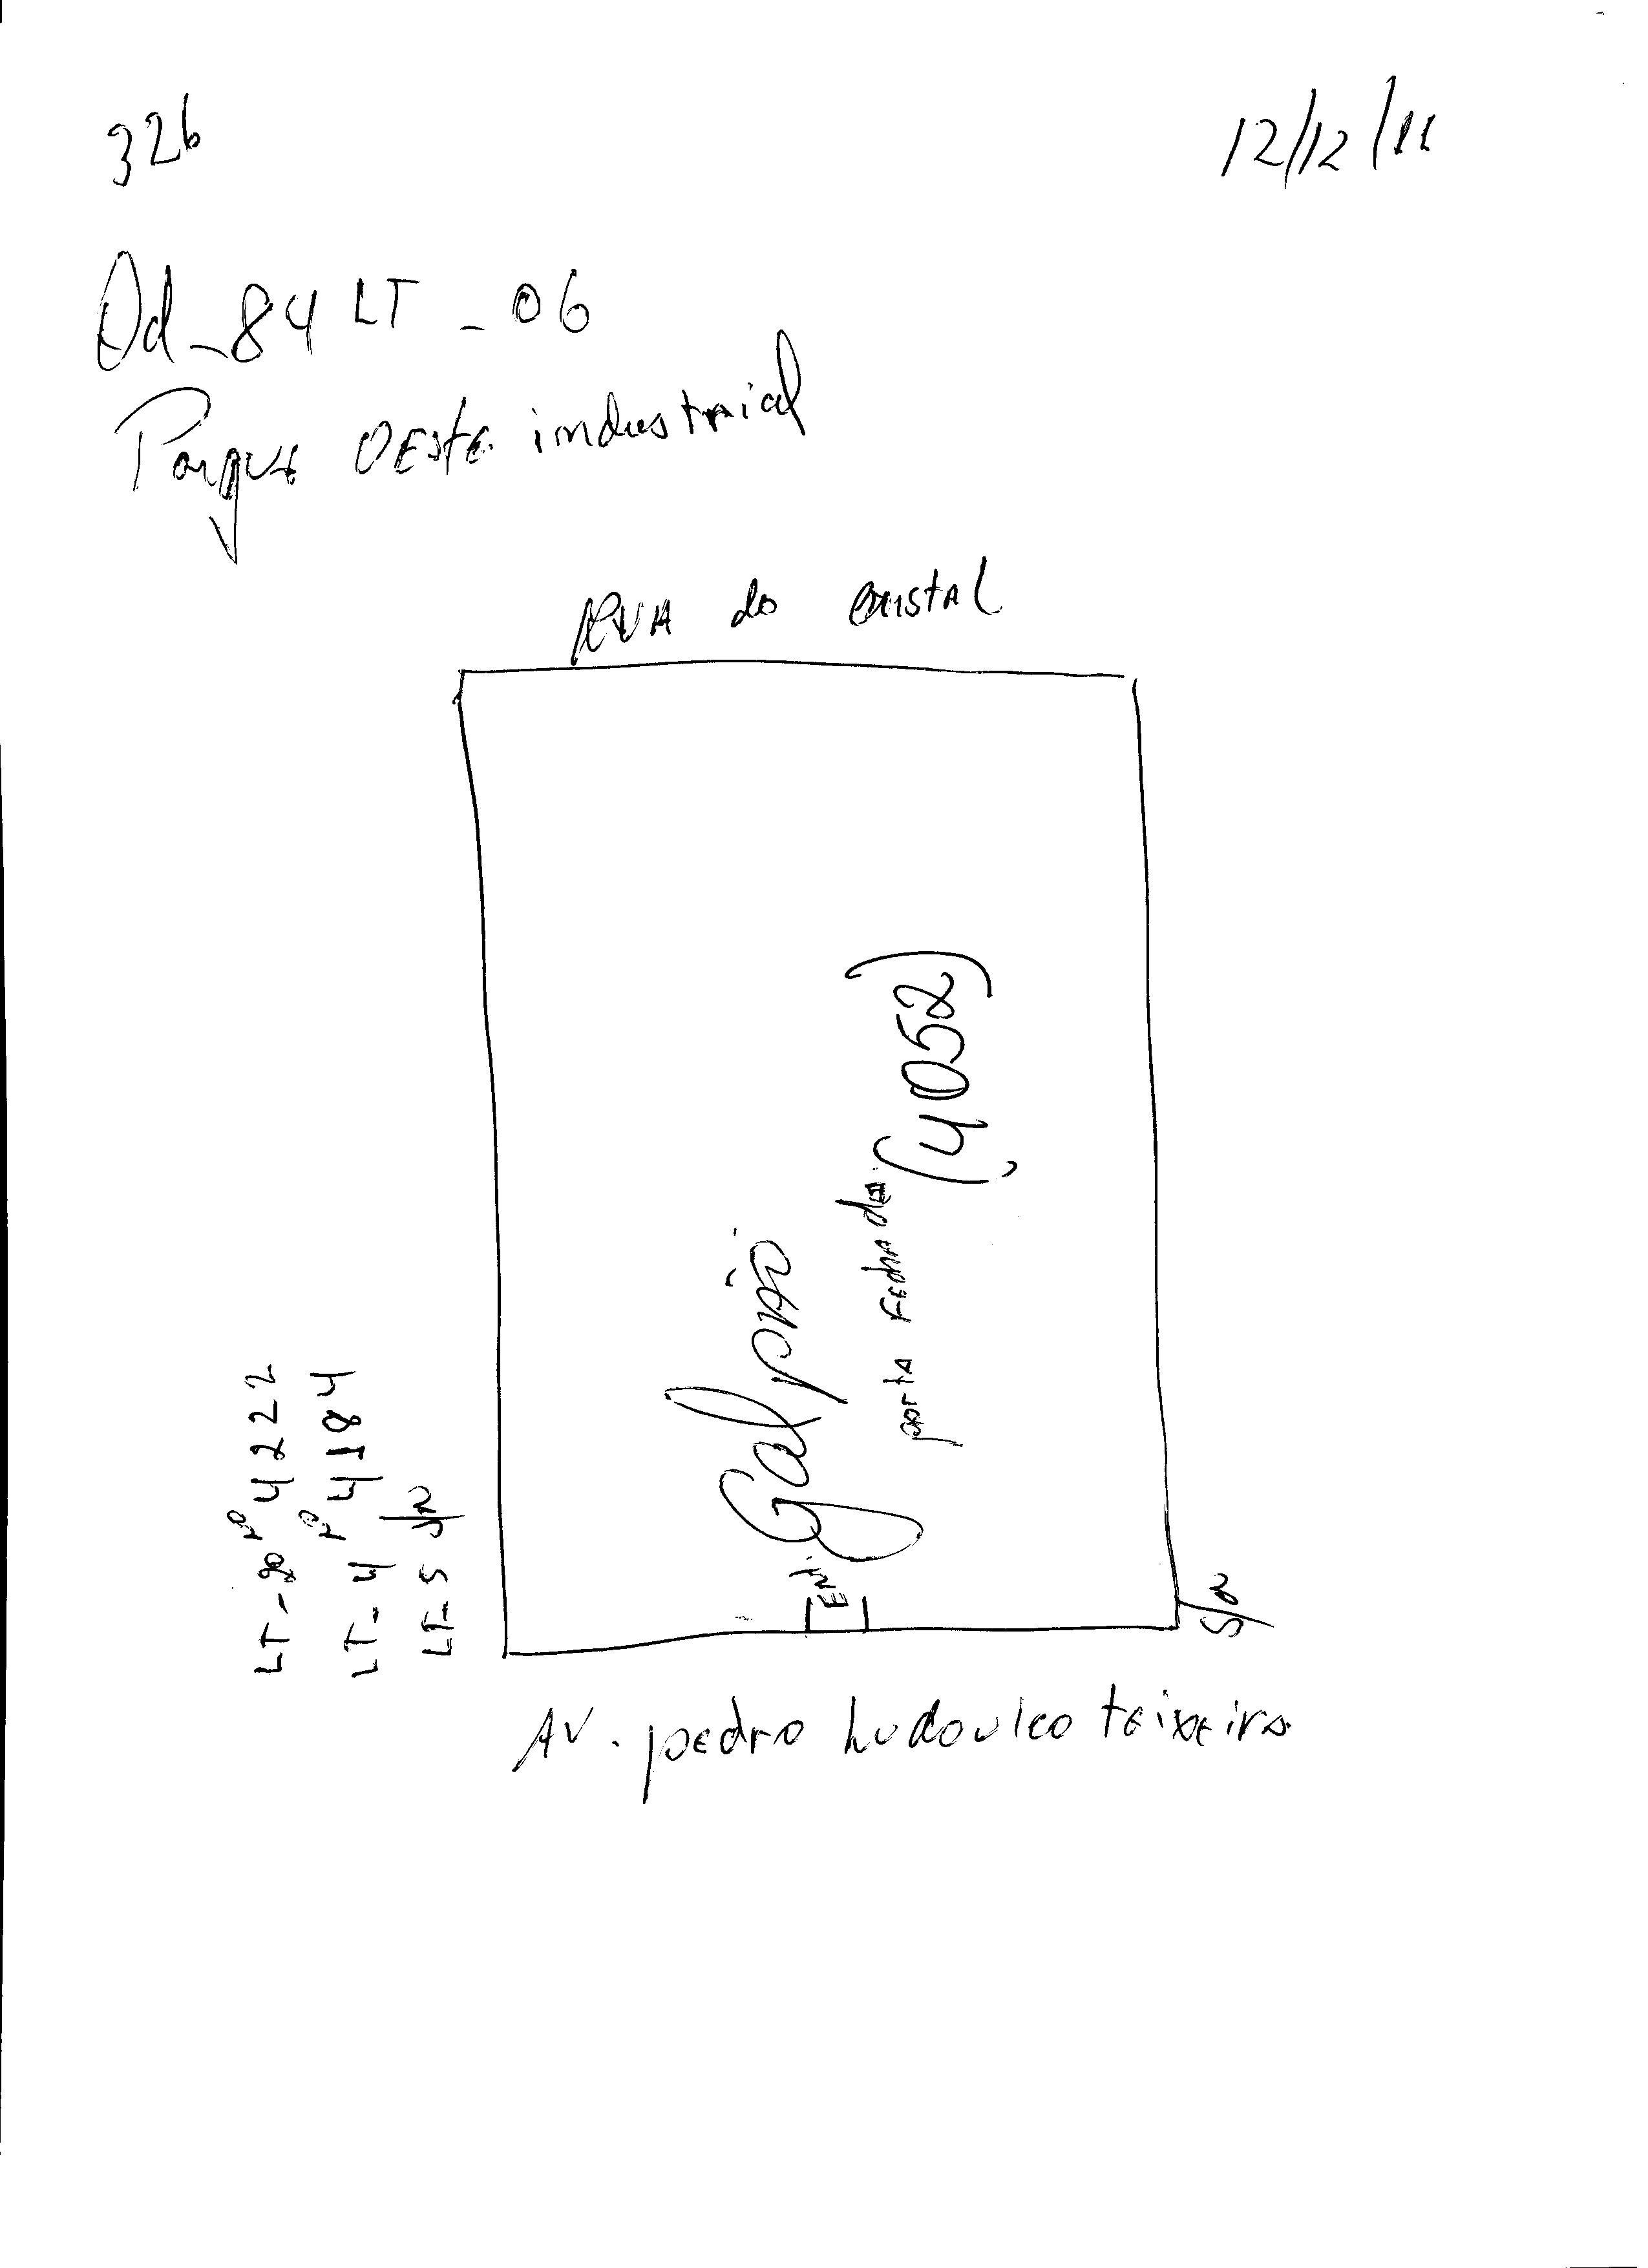 326
12/12/11
Qd_84 LT_06
Parque OEste industrial
RUA do cristal
Galpão
porta Fechada (4052)
Ent.
LT_20 nº 4222
LT_4 nº 4184
LT_5 S/N
S/N
AV. pedro Ludovico teixeira